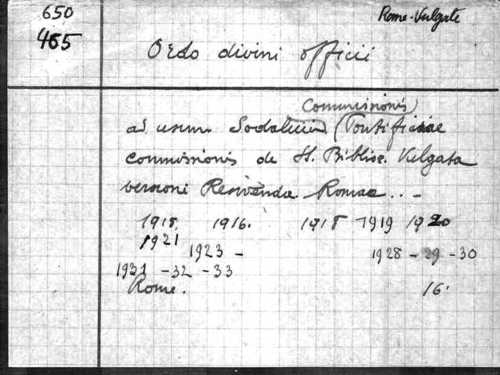 650
465
Rome-Vulgate
Ordo divini officii
Commissionis
ad usum Sodalium (Pontificiae
commissionis de St. Bibliae Vulgata
versioni Romae . . -
1915 1916. 1918 1919 1920
1921
1923 - 1928 - 29 - 30
1931 - 32 - 33
Rome. 16.